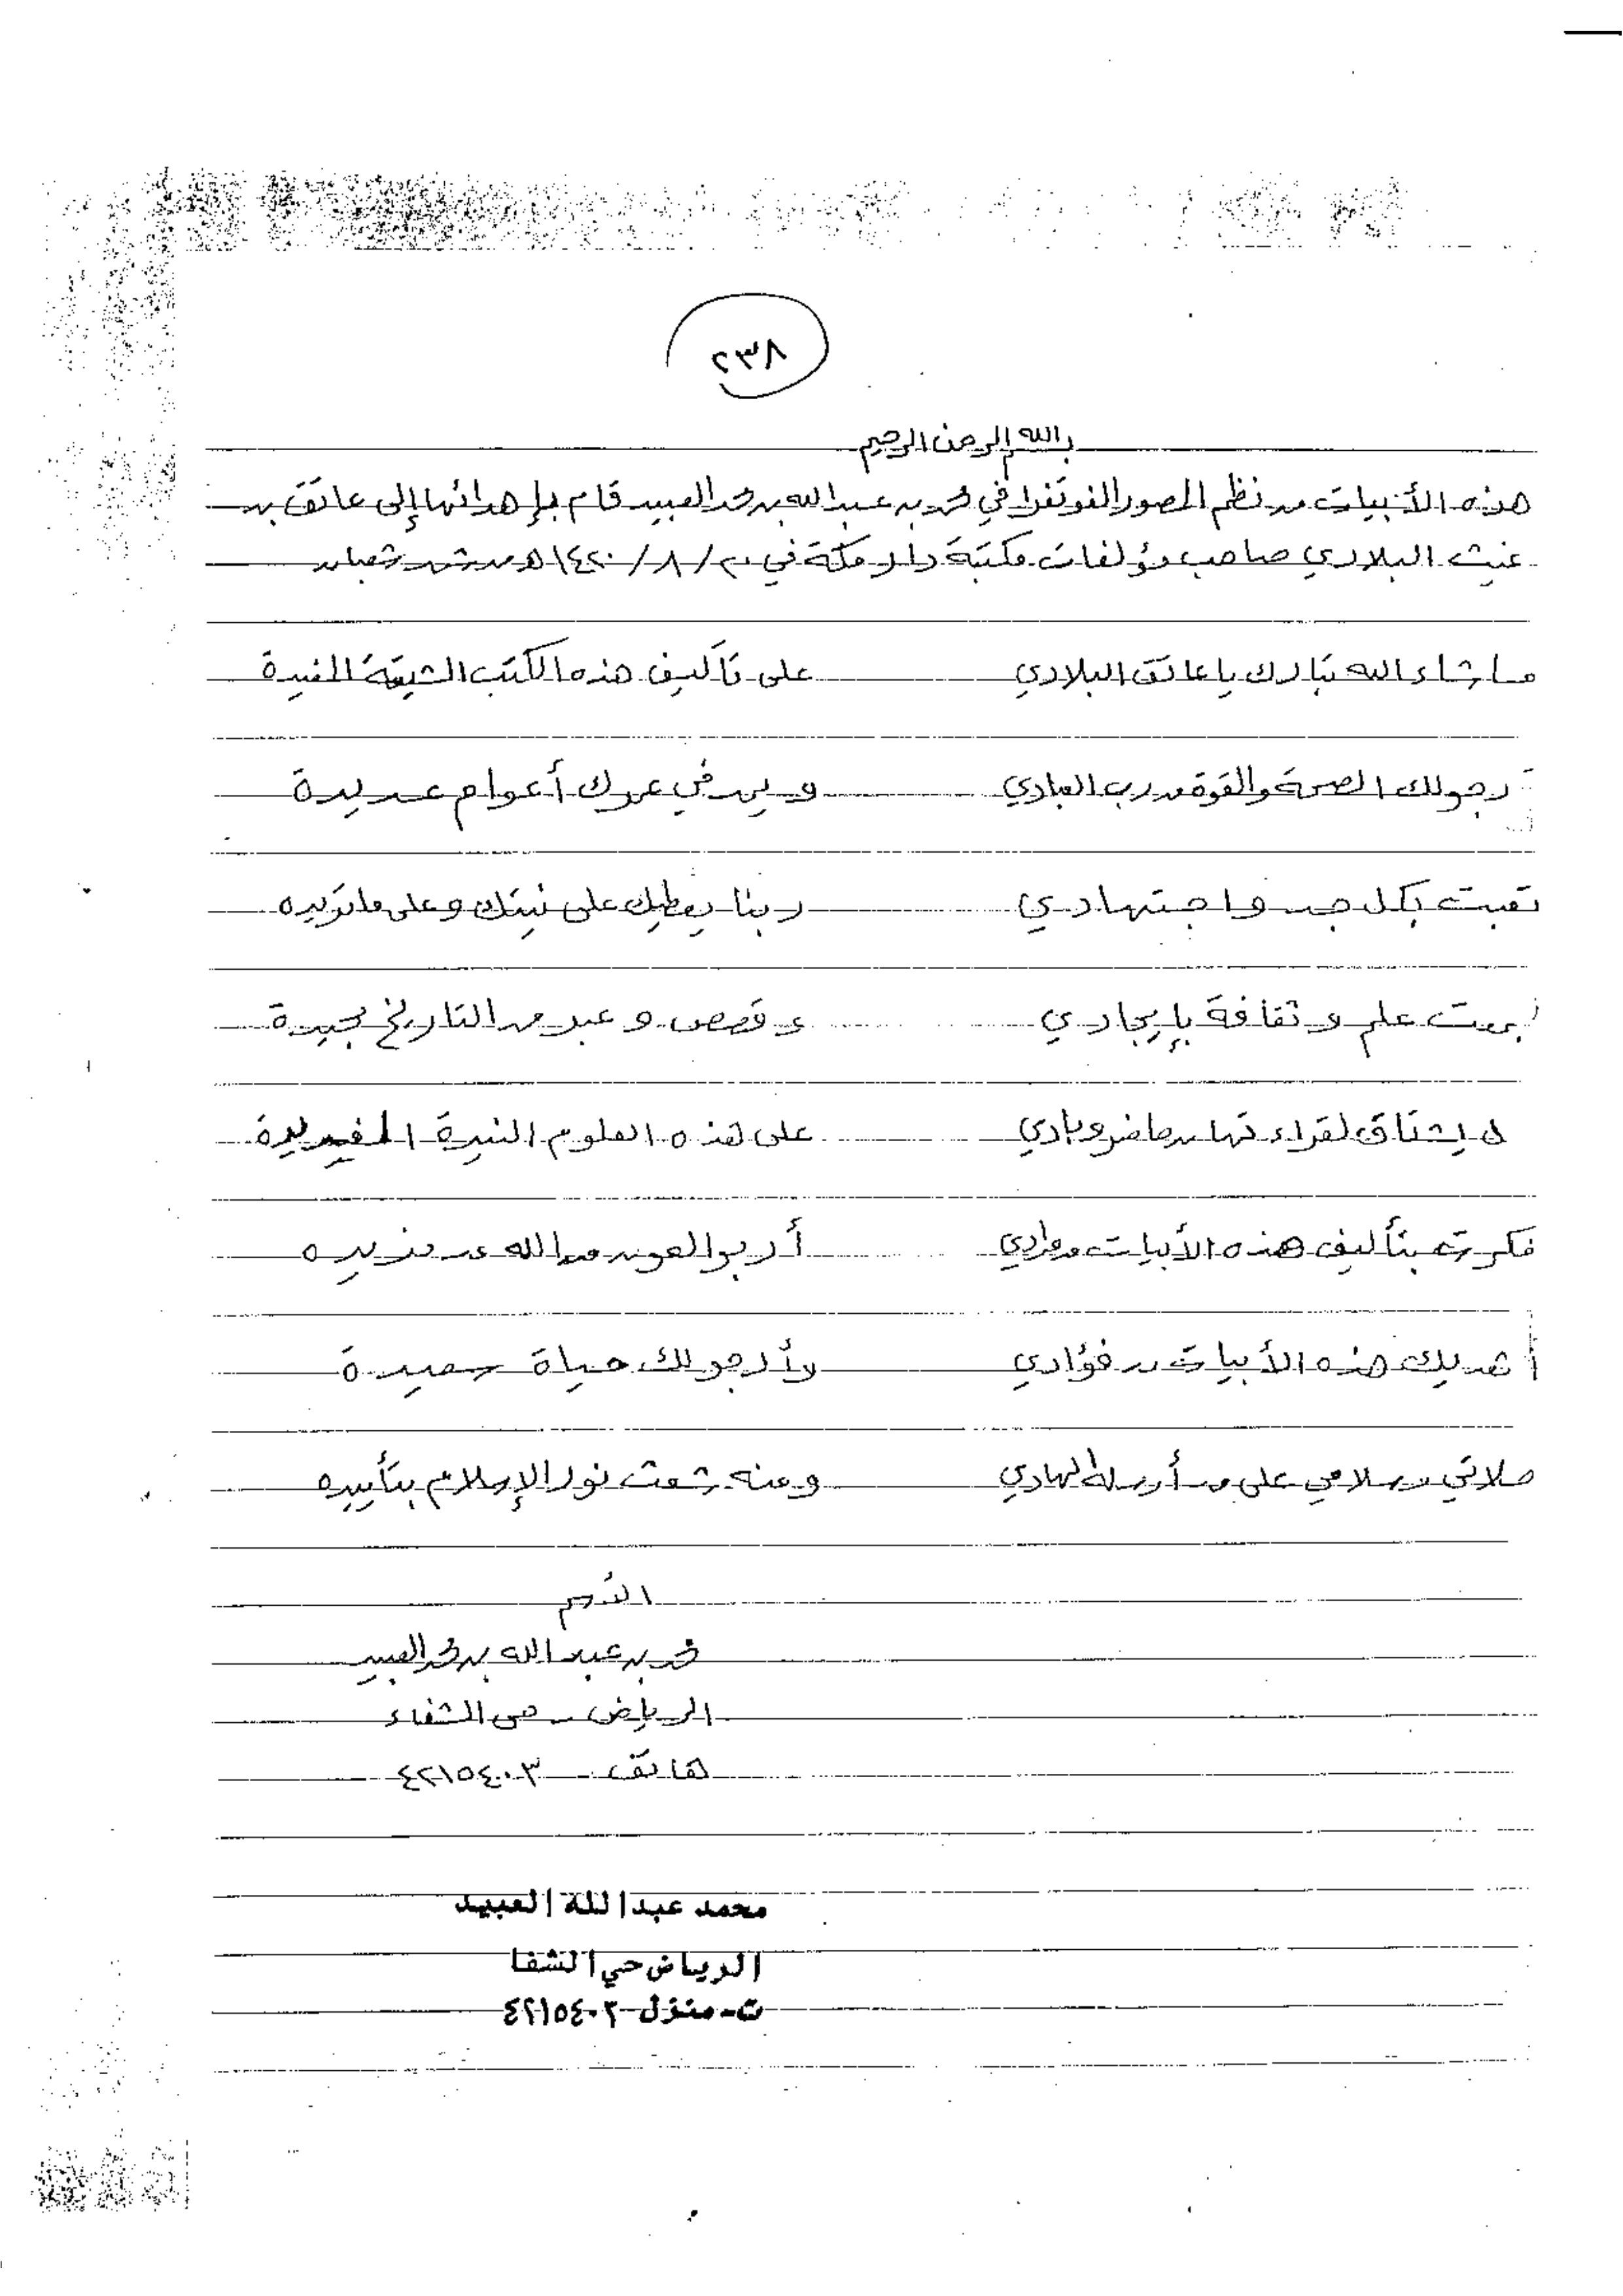 ٢٣٨
بسم الله الرحمن الرحيم
هذه الأبيات من نظم المصور الفوتغرافي محمد بن عبدالله بن محمد العبيد قام بإهدائها إلى عاتق بن
غيث البلادي صاحب مؤلفات مكتبة دار مكة في ٢٠/٨/١٤٢٠هـ من شهر شعبان
ما شاء الله تبارك يا عاتق البلادي على تأليف هذه الكتب الشيقة المفيدة
رجو لك الصحة والقوة من رب العبادي ويمد في عمرك أعوام عديدة
تعبت بكل جد واجتهادي ربنا يعطيك على نيتك وعلى ما تريده
جمعت علم وثقافة بإيجادي وقصص وعبر من التاريخ مجيدة
يشتاق لقراءتها من حاضر وبادي على هذه العلوم النيرة المفيدة
فكرت بتأليف هذه الأبيات مرادي أرجوا العون من الله من مزيده
أهديك هذه الأبيات من فؤادي وأرجو لك حياة سعيدة
صلاتي وسلامي على من أرسله الهادي ومنه شعت نور الإسلام بتأييده
محمد بن عبد الله بن محمد العبيد
الرياض - حي الشفاء
هاتف - ٤٢١٥٤٠٣
محمد عبدالله العبيد
الرياض حي الشفا
ت-منزل-٤٢١٥٤٠٣